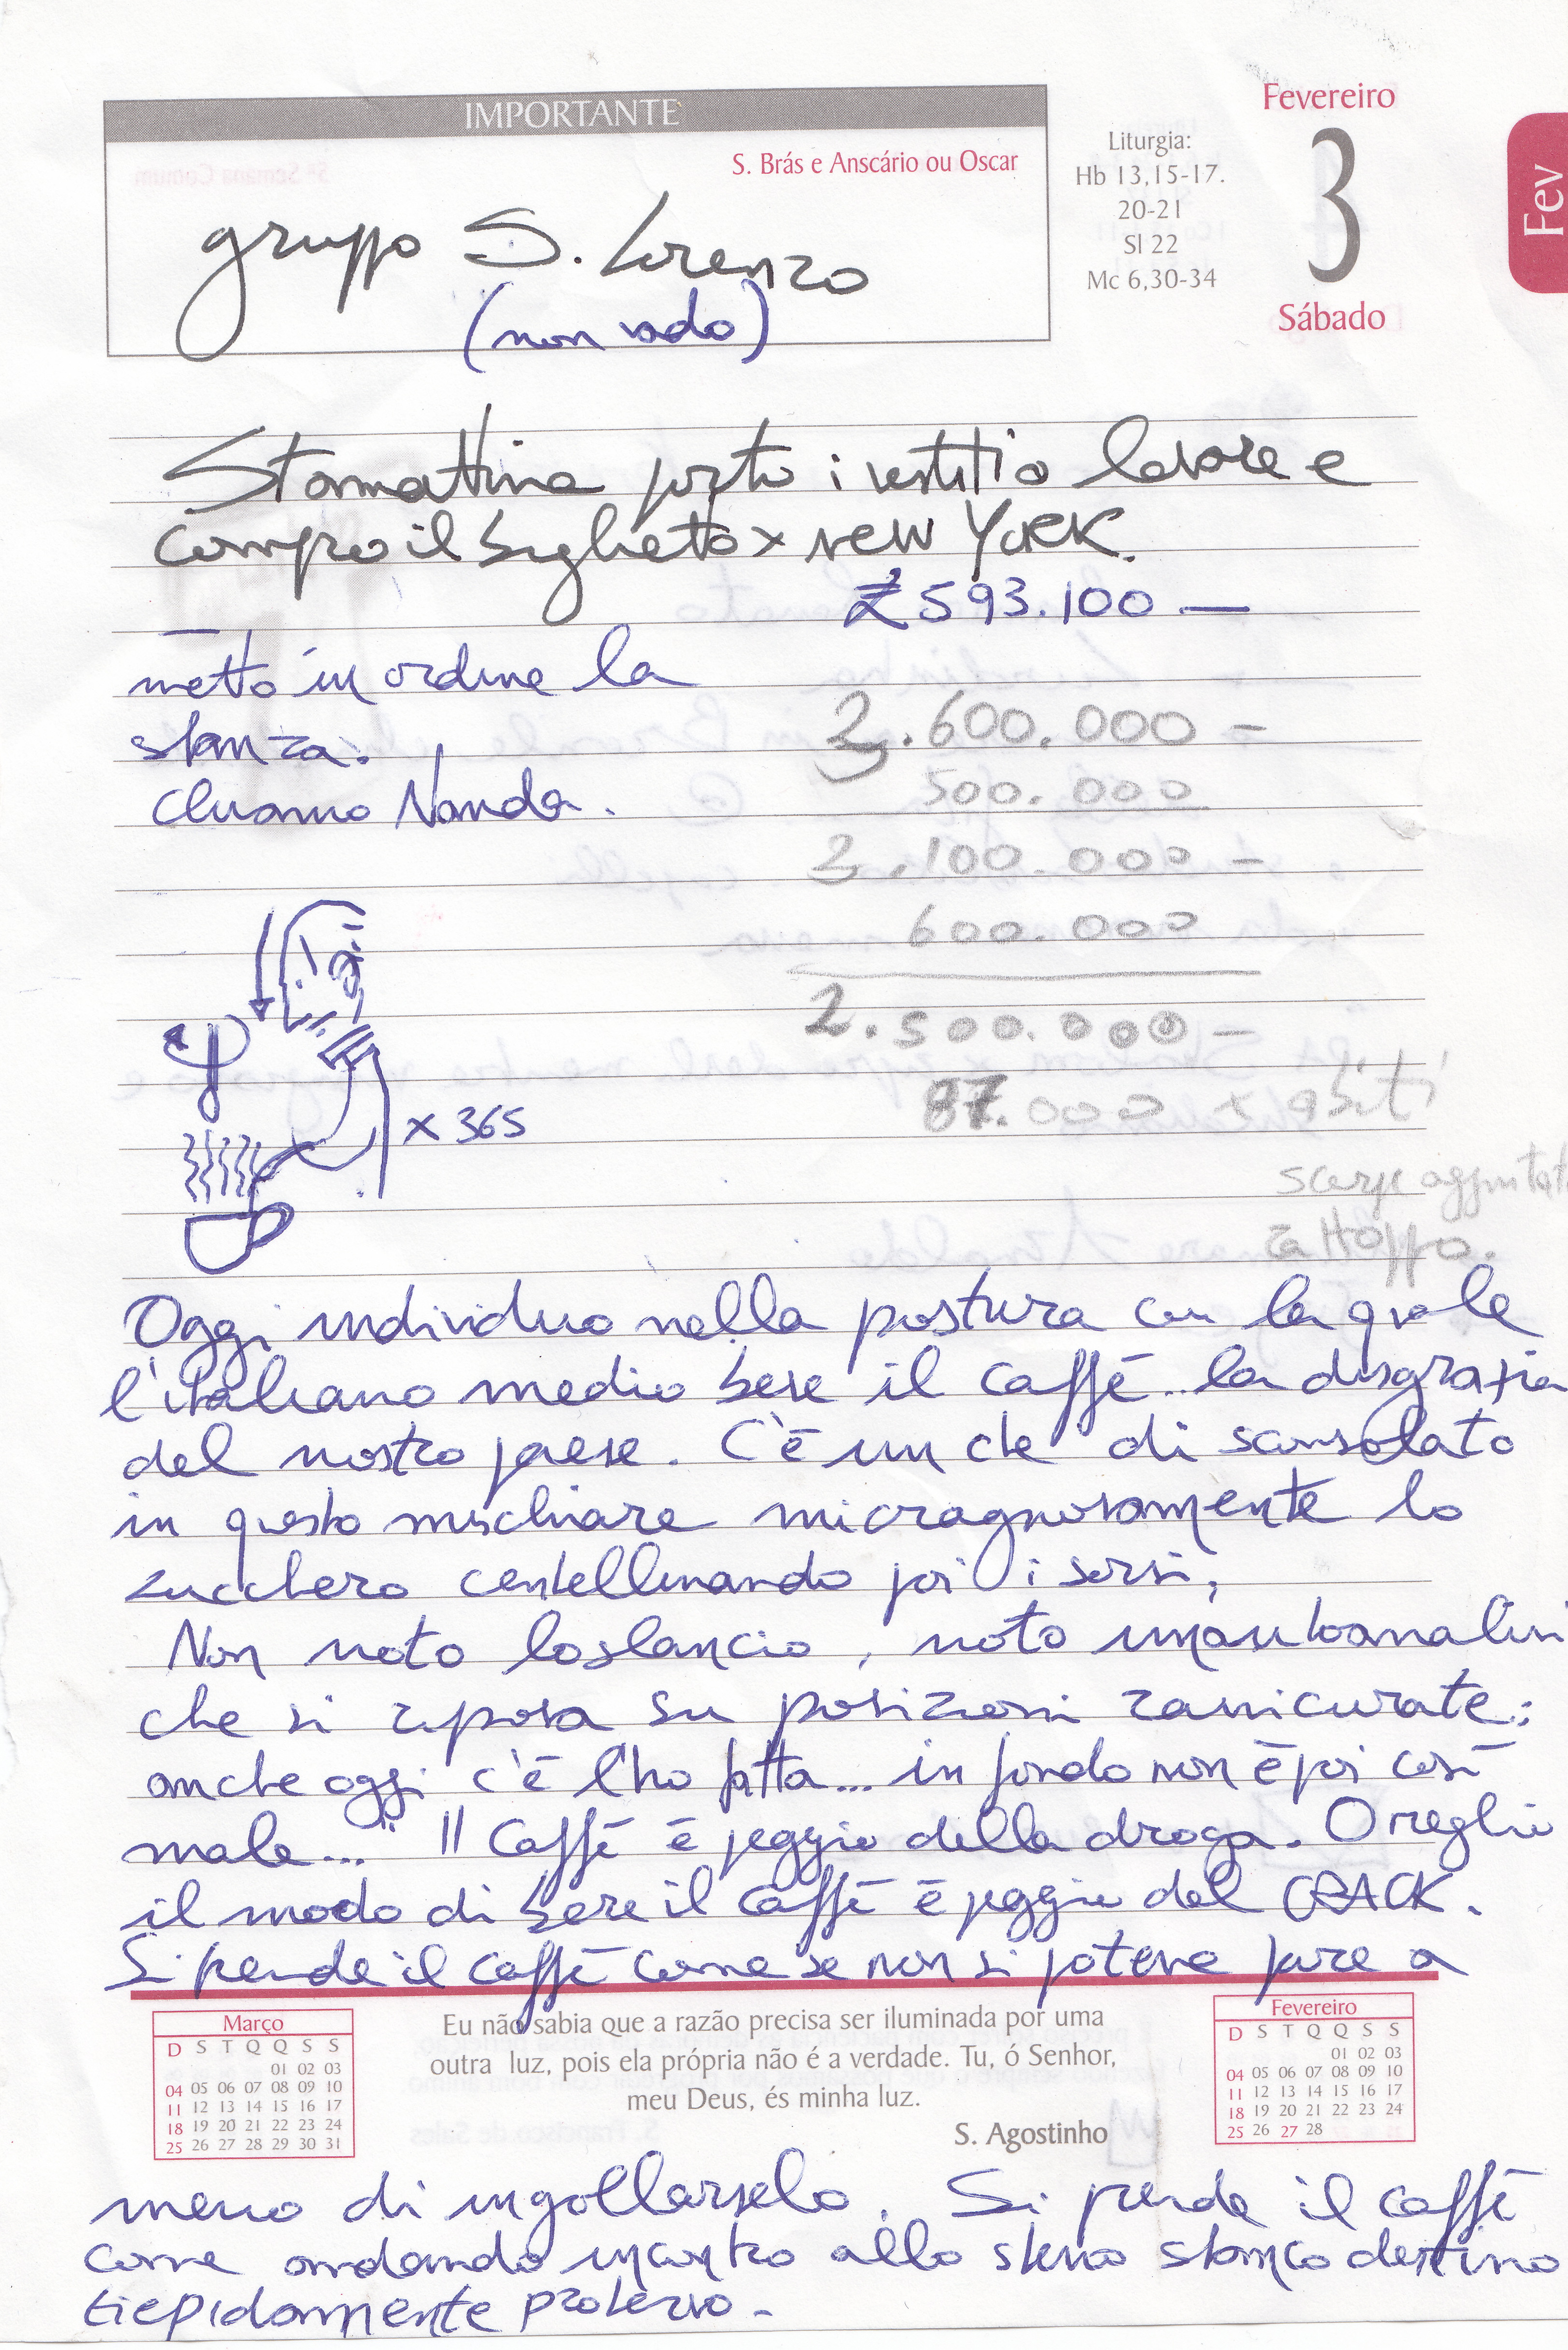 IMPORTANTE
S. Brás e Anscário ou Oscar
gruppo S. Lorenzo
(non vado)
Liturgia:
Hb 13,15-17.
20-21
Sl 22
Mc 6,30-34
Fevereiro
3
Sábado
Fev
Stamattina porto i vestiti a lavare e
compro il biglietto x NEW YORK.
₤ 593.100 —
metto in ordine la
stanza.
Chiamo Nanda.
2.600.000 —
500.000
2.100.000 —
600.000
2.500.000 —
87.000 x abiti
scarpe
x 365
Oggi individuo nella postura con la quale
l'italiano medio beve il caffè.. la disgrazia
del nostro paese. C'è un che di sconsolato
in questo mischiare micragnosamente lo
zucchero centellinando poi i sorsi,
Non noto lo slancio, noto un'autoanalisi
che si riposa su posizioni rassicurate:
anche oggi c'è l'ho fatta... in fondo non è poi così
male..." Il Caffè è peggio della droga. O meglio
il modo di bere il caffè è peggio del CRACK.
Si prende il caffè come se non si potesse fare a
Março
D S T Q Q S S
01 02 03
04 05 06 07 08 09 10
11 12 13 14 15 16 17
18 19 20 21 22 23 24
25 26 27 28 29 30 31
Eu não sabia que a razão precisa ser iluminada por uma
outra luz, pois ela própria não é a verdade. Tu, ó Senhor,
meu Deus, és minha luz.
S. Agostinho
Fevereiro
D S T Q Q S S
01 02 03
04 05 06 07 08 09 10
11 12 13 14 15 16 17
18 19 20 21 22 23 24
25 26 27 28
meno di ingollarselo. Si prende il caffè
come andando incontro allo stesso stanco destino
tiepidamente protervo.